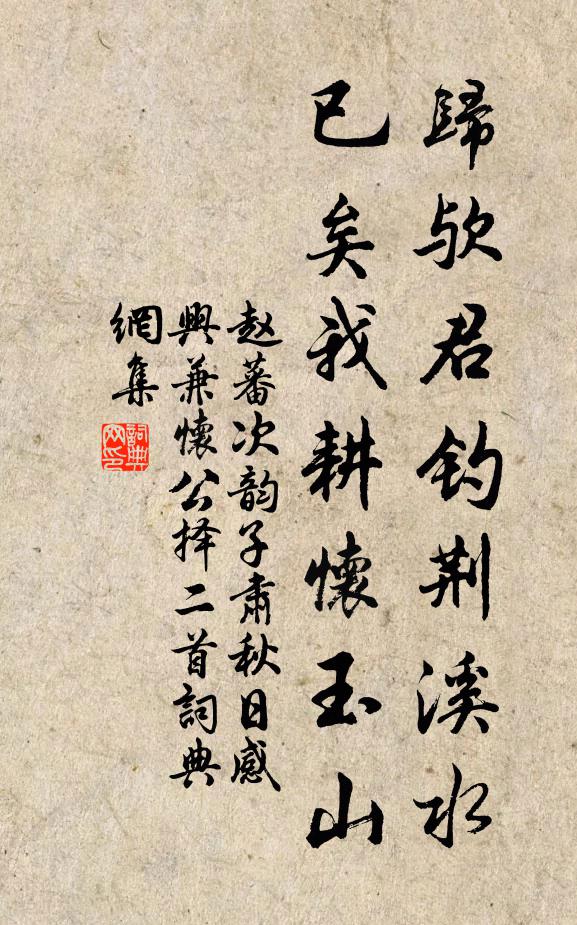 歸欤君钓荆溪水
已矣我耕懷玉山
赵蕃次韵子肃秋日感
興兼懷公择二首詞典
網集
詞典
网印